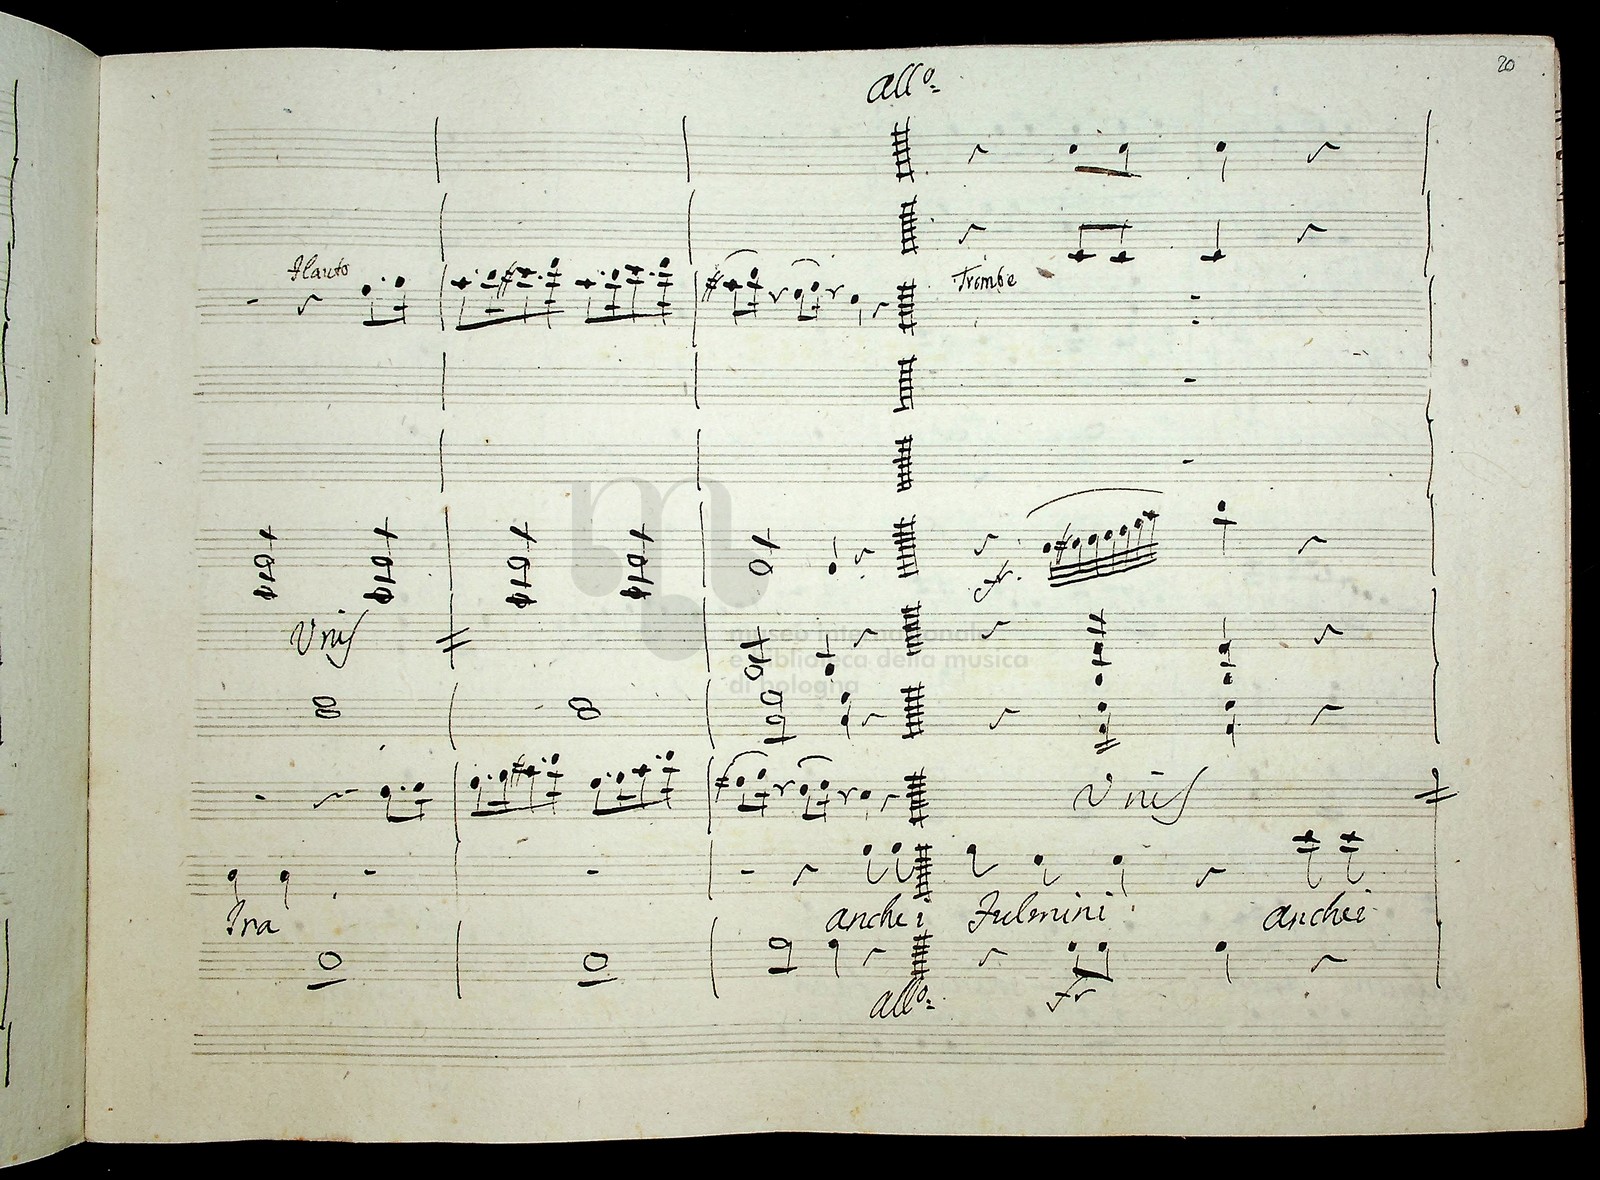 20
allo:
Flauto
Trombe
Unis
museo internazionale
e biblioteca della musica
di bologna
fr.
Unis
Ira anche i Fulmini anchei
allo: fr